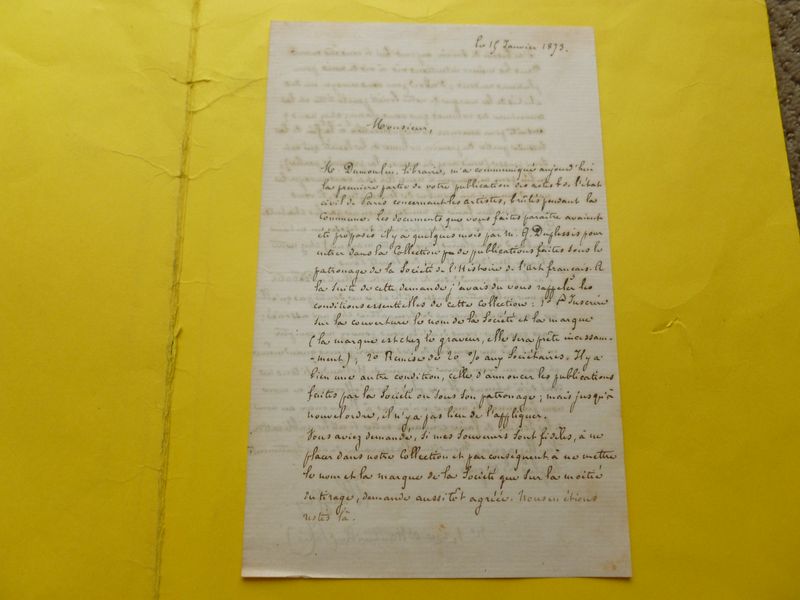 le 15 Janvier 1873.
Monsieur,
Mr Dumoulin, libraire, m'a communiqué aujourd'hui
la première partie de votre publication des actes de l'état
civil de Paris concernant les artistes, brûlés pendant la
Commune. Les documents que vous faites paraître avaient
été proposés il y a quelques mois par M. G. Duplessis pour
entrer dans la Collection de publications faites sous le
patronage de la Société de l'Histoire de l'Art français. A
la suite de cette demande j'avais du vous rappeler les
conditions essentielles de cette collection : 1º Inscrire
sur la couverture le nom de la Société et la marque
(la marque est chez le graveur, elle sera prête incessam-
-ment) ; 2º Remise de 20 % aux Sociétaires. Il y a
bien une autre condition, celle d'annoncer les publications
faites par la Société ou sous son patronage ; mais jusqu'à
nouvel ordre, il n'y a pas lieu de l'appliquer.
Vous aviez demandé, si mes souvenirs sont fidèles, à ne
placer dans notre Collection et par conséquent à ne mettre
le nom et la marque de la Société que sur la moitié
du tirage, demande aussitôt agréée. Nous en étions
restés là.